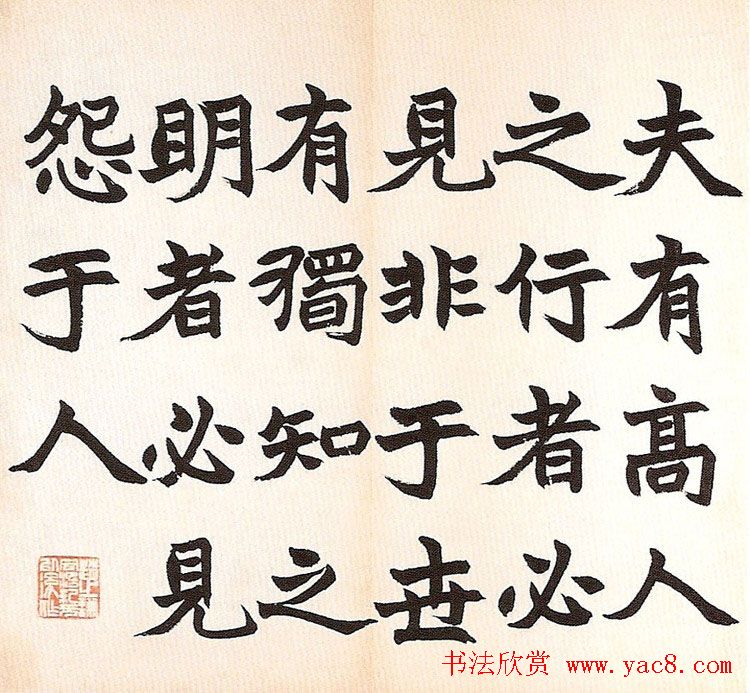 夫有高人
之行者必
見非于世
有獨知之
明者必見
怨于人
书法欣赏 www.yac8.com